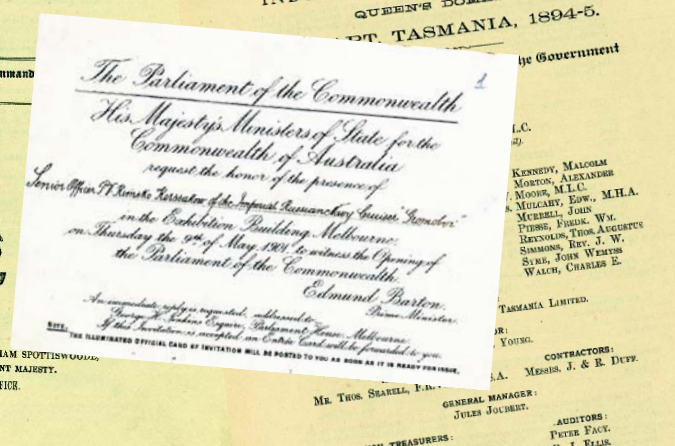 QUEEN'S
ART, TASMANIA, 1894-5.
the Government
1
The Parliament of the Commonwealth
His Majesty's Ministers of State for the
Commonwealth of Australia
request the honor of the presence of
Senior Officer of the Imperial Cruiser "Gromoboi"
in the Exhibition Building, Melbourne,
on Thursday the 9th of May 1901 to witness the Opening of
the Parliament of the Commonwealth.
Edmund Barton.
Prime Minister.
An immediate reply is requested, addressed to
George H. Jenkins Esquire, Parliament House, Melbourne
If this Invitation is accepted an Entrée Card will be forwarded to you.
NOTE. THE ILLUMINATED OFFICIAL CARD OF INVITATION WILL BE POSTED TO YOU AS SOON AS IT IS READY FOR ISSUE.
L.C.
KENNEDY, MALCOLM
MORTON, ALEXANDER
MOORE, M.L.C.
MULCAHY, EDW., M.H.A.
MURRELL, JOHN
PIESSE, FREDK. WM.
REYNOLDS, THOS. AUGUSTUS
SIMMONS, REV. J. W.
SYME, JOHN WEMYSS
WALCH, CHARLES E.
TASMANIA LIMITED.
YOUNG.
CONTRACTORS:
S.A. MESSRS. J. & R. DUFF.
MR. THOS. SEARELL, F.R.
GENERAL MANAGER:
JULES JOUBERT.
TREASURERS:
AUDITORS:
PETER FACY.
ELLIS.
HAM SPOTTISWOODE,
NT MAJESTY.
FICE.